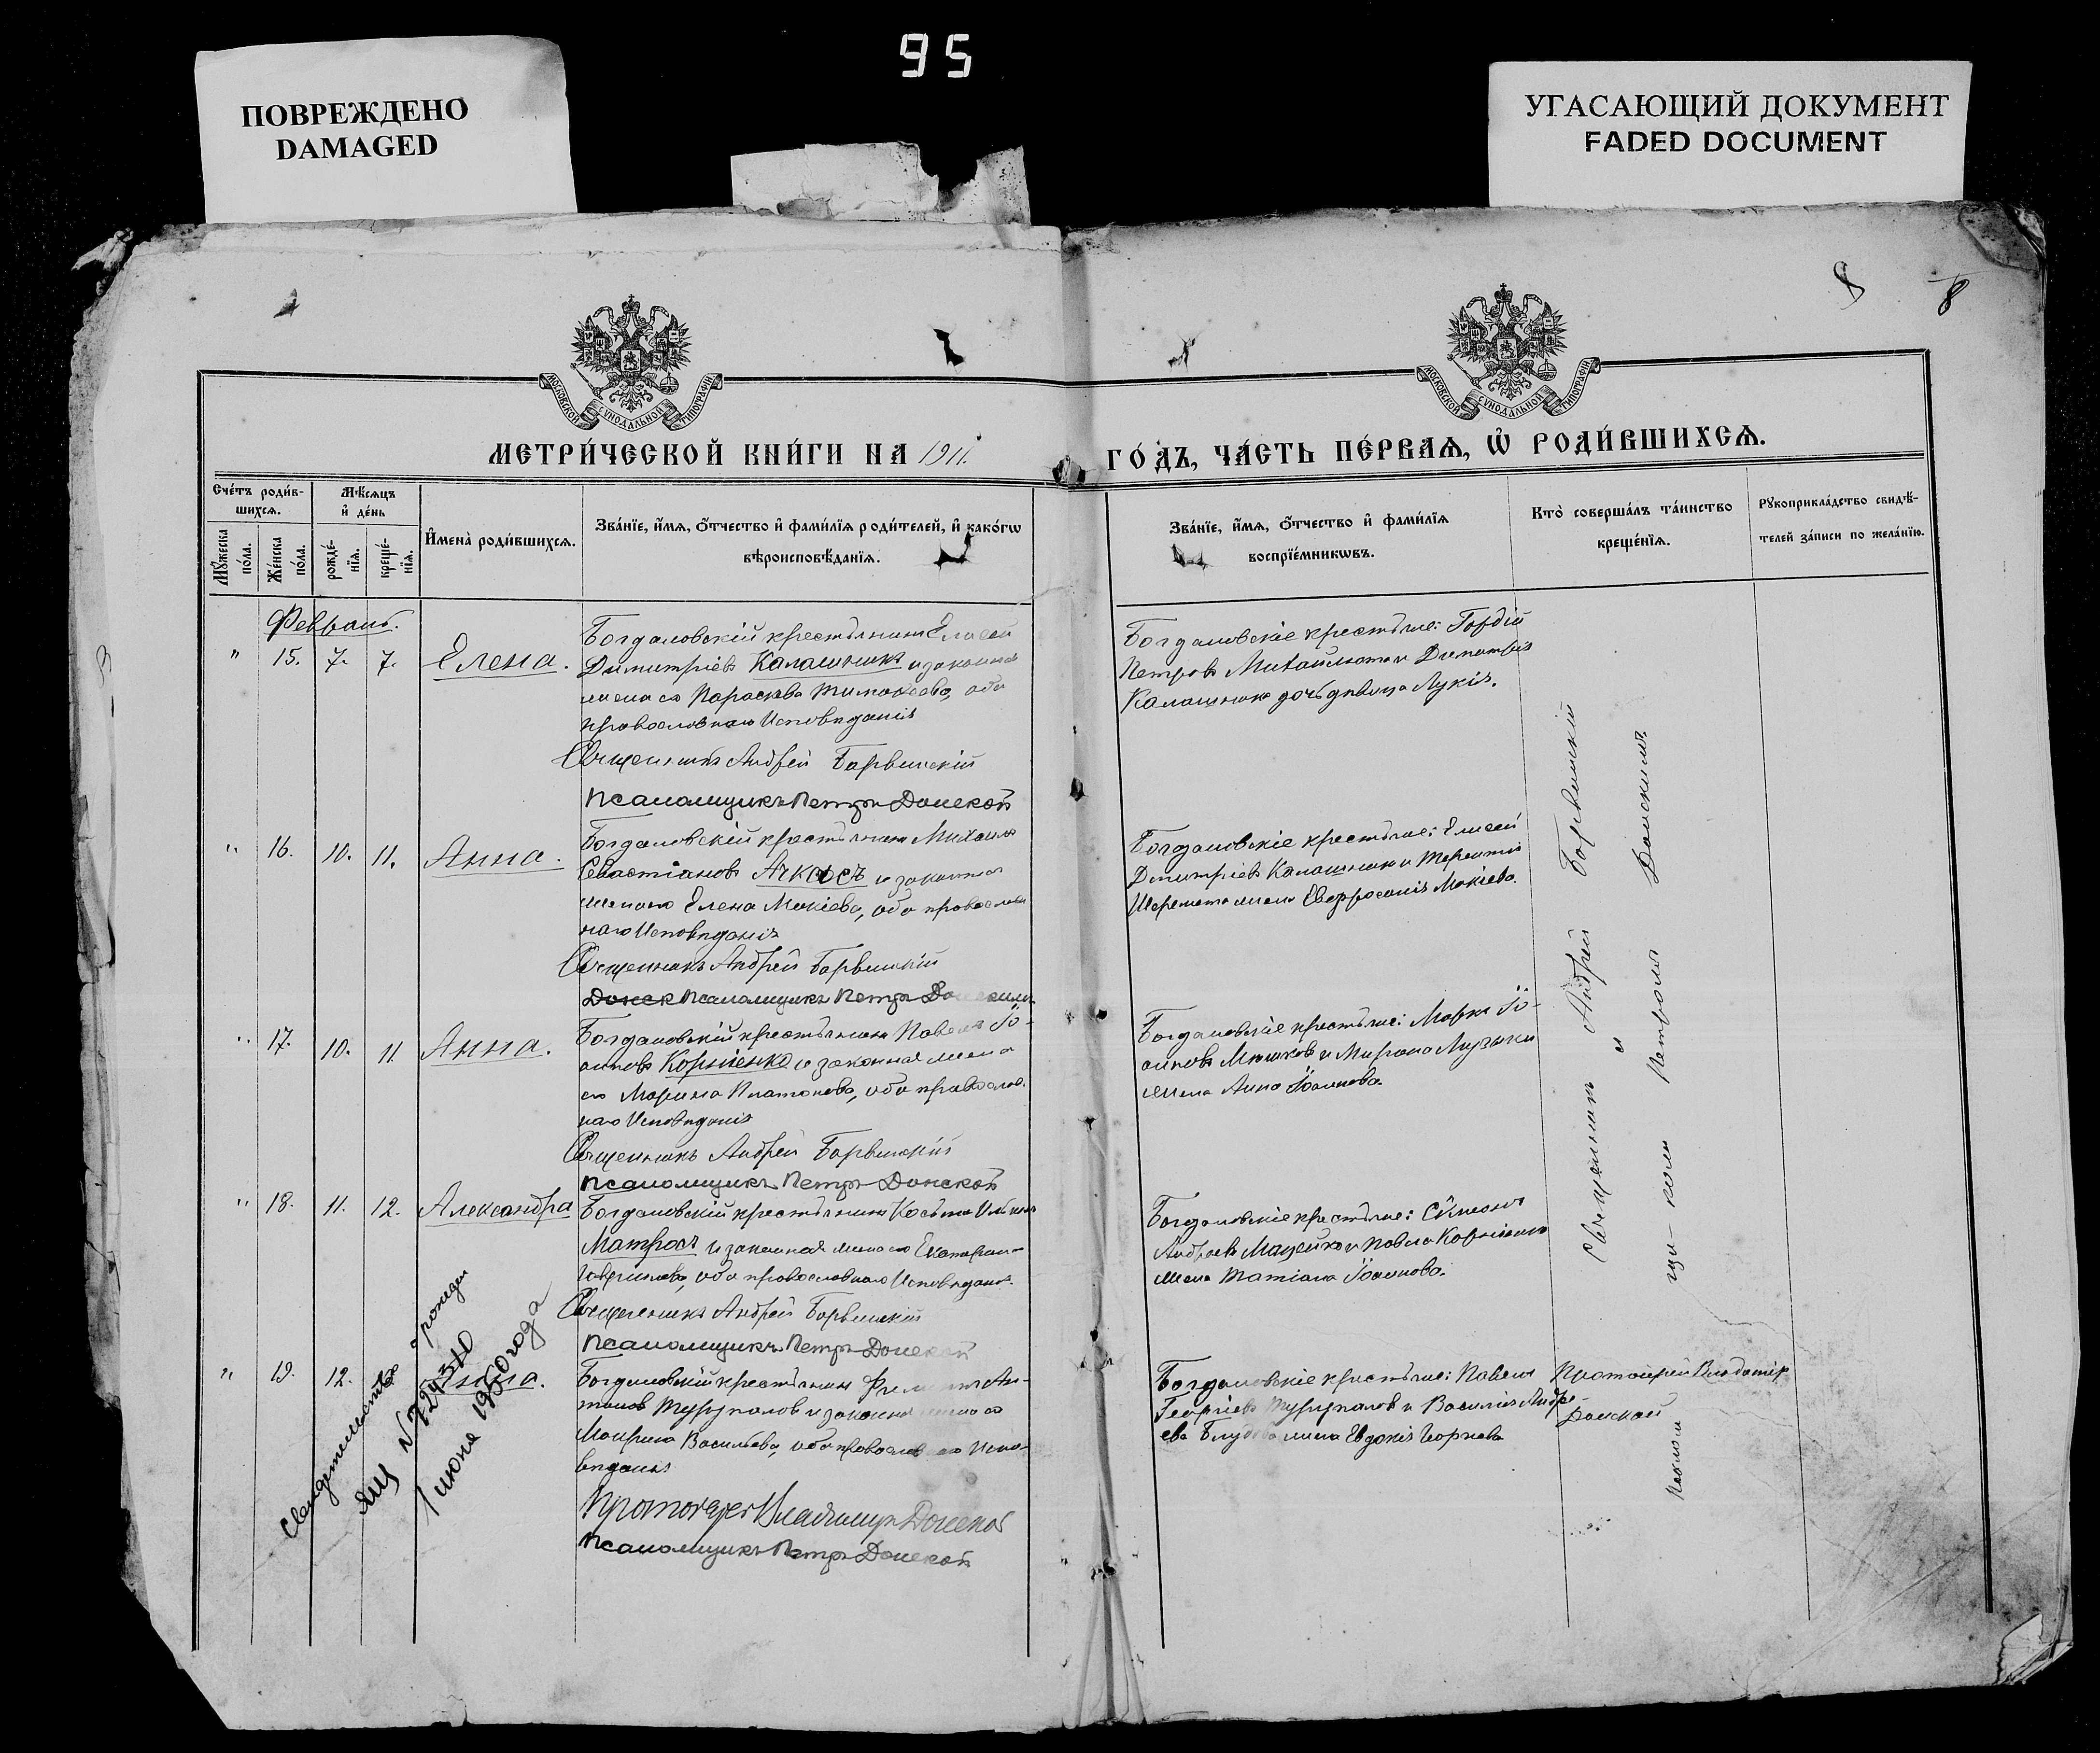 95
ПОВРЕЖДЕНО
DAMAGED
УГАСАЮЩИЙ ДОКУМЕНТ
FADED DOCUMENT
8 8
МОСКОВСКОЙ СѴНОДАЛЬНОЙ ТИПОГРАФІИ
МОСКОВСКОЙ СѴНОДАЛЬНОЙ ТИПОГРАФІИ
МЕТРИ́ЧЕСКОЙ КНИ́ГИ НА 1911.
ГО́ДЪ, ЧА́СТЬ ПЕ́РВАѦ, Ѡ҆ РОДИ́ВШИХСѦ.
Сче́тъ роди́в-
шихсѧ.
Мѣ́сѧцъ
и҆ де́нь
Мꙋ́жеска
по́ла.
Же́нска
по́ла.
рожде́-
нїѧ.
креще́-
нїѧ.
И҆мена̀ роди́вшихсѧ.
Зва́нїе, и҆́мѧ, ѻ҆́тчество и҆ фами́лїѧ роди́телей, и҆ како́гѡ
вѣроисповѣ́данїѧ.
Зва́нїе, и҆́мѧ, ѻ҆́тчество и҆ фами́лїѧ
воспрїе́мникѡвъ.
Кто̀ соверша́лъ та́инство
креще́нїѧ.
Рꙋкоприкла́дство свидѣ́-
телей за́писи по жела́нїю.
Февраль.
" 15. 7. 7. Елена.
Богдановскій крестьянинъ Елисей
Димитріевъ Калашникъ и законная
жена его Параскева Тимофеева, оба
православнаго Исповѣданія
Священникъ Андрей Барвинскій
Псаломщикъ Петръ Донской
Богдановскіе крестьяне: Гордій
Петровъ и Димитрія
Калашника дочь дѣвица Лукія.
" 16. 10. 11. Анна.
Богдановскій крестьянинъ Михаилъ
Севастіановъ и законная
жена его Елена Мокіева, оба православ
наго Исповѣданія
Священникъ Андрей Барвинскій
Донск Псаломщикъ Петръ
Богдановскіе крестьяне: Елисей
Дмитріевъ Калашникъ и Терентія
Шеремета жена Евфросинія Мокіева.
" 17. 10. 11 Анна.
Богдановскій крестьянинъ Павелъ Іо-
анновъ Корніенко и законная жена
его Марина Платонова, оба православ.
наго Исповѣданія
Священникъ Андрей Барвинскій
Псаломщикъ Петръ Донской
Богдановскіе крестьяне: Маркъ Іо-
анновъ и Мирона Музыки
жена Анна Іоаннова.
" 18. 11. 12. Александра
Богдановскій крестьянинъ Косьма
Матросъ и законная жена его Екатерина
Гавриилова, оба православнаго Исповѣданія.
Священникъ Андрей Барвинскій
Псаломщикъ Петръ Донской
Богдановскіе крестьяне: Сѵмеонъ
Андреевъ и Павла Корніенко
жена Татіана Іоаннова.
Священникъ Андрей Барвинскій
и
Петромъ Донскимъ
" 19. 12.
Богдановскій крестьянинъ Ан-
тоновъ и законная жена его
Васильева, оба православнаго Испо-
вѣданія
Протоіерей Владимиръ Донской
Псаломщикъ Петръ Донской
Богдановскіе крестьяне: Павелъ
Георгіевъ и Василія Андре-
ева жена Евдокія
Протоіерей Владимір
Донской
Свидетельство о рожден
ЯЩ №
1 июня 1950 года